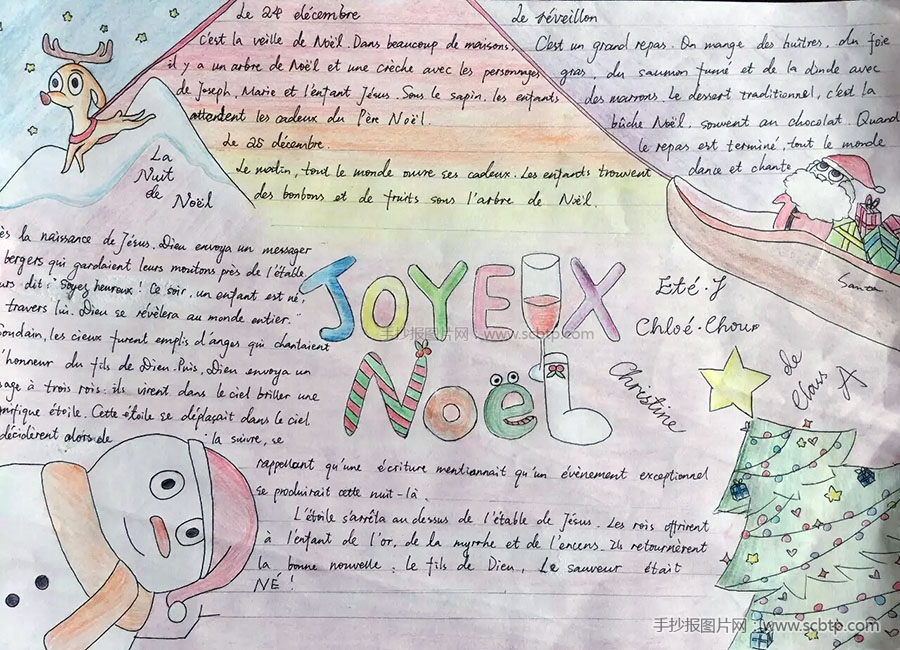 Le 24 décembre
C'est la veille de Noël. Dans beaucoup de maisons,
il y a un arbre de Noël et une crèche avec les personnages
de Joseph, Marie et l'enfant Jésus. Sous le sapin, les enfants
attendent les cadeaux du Père Noël.
Le 25 décembre.
Le matin, tout le monde ouvre ses cadeaux. Les enfants trouvent
des bonbons et de fruits sous l'arbre de Noël.
Le réveillon
C'est un grand repas. On mange des huîtres, du foie
gras, du saumon fumé et de la dinde avec
des marrons. Le dessert traditionnel, c'est la
bûche Noël, souvent au chocolat. Quand
le repas est terminé, tout le monde
dance et chante
La
Nuit
de Noël
ès la naissance de Jésus, Dieu envoya un messager
bergers qui gardaient leurs moutons près de l'étable.
urs dit: "Soyez heureux! Ce soir, un enfant est né,
travers lui, Dieu se révèlera au monde entier."
Soudain, les cieux furent emplis d'anges qui chantaient
l'honneur du fils de Dieu. Puis, Dieu envoya un
sage à trois rois: ils virent dans le ciel briller une
nifique étoile. Cette étoile se déplaçait dans le ciel
décidèrent alors de la suivre, se
rappellant qu'une écriture mentiannait qu'un évènement exceptionnel
se produirait cette nuit-là.
L'étoile s'arrêta au dessus de l'étable de Jésus. Les rois offrirent
à l'enfant de l'or, de la myrrhe et de l'encens. Ils retournèrent
la bonne nouvelle: le fils de Dieu, Le sauveur était
NÉ!
JOYEUX
Noël
手抄报图片网：www.scbtp.com
Santa
Eté·J
Chloé·Chour
Christine
de
class A
手抄报图片网：www.scbtp.com